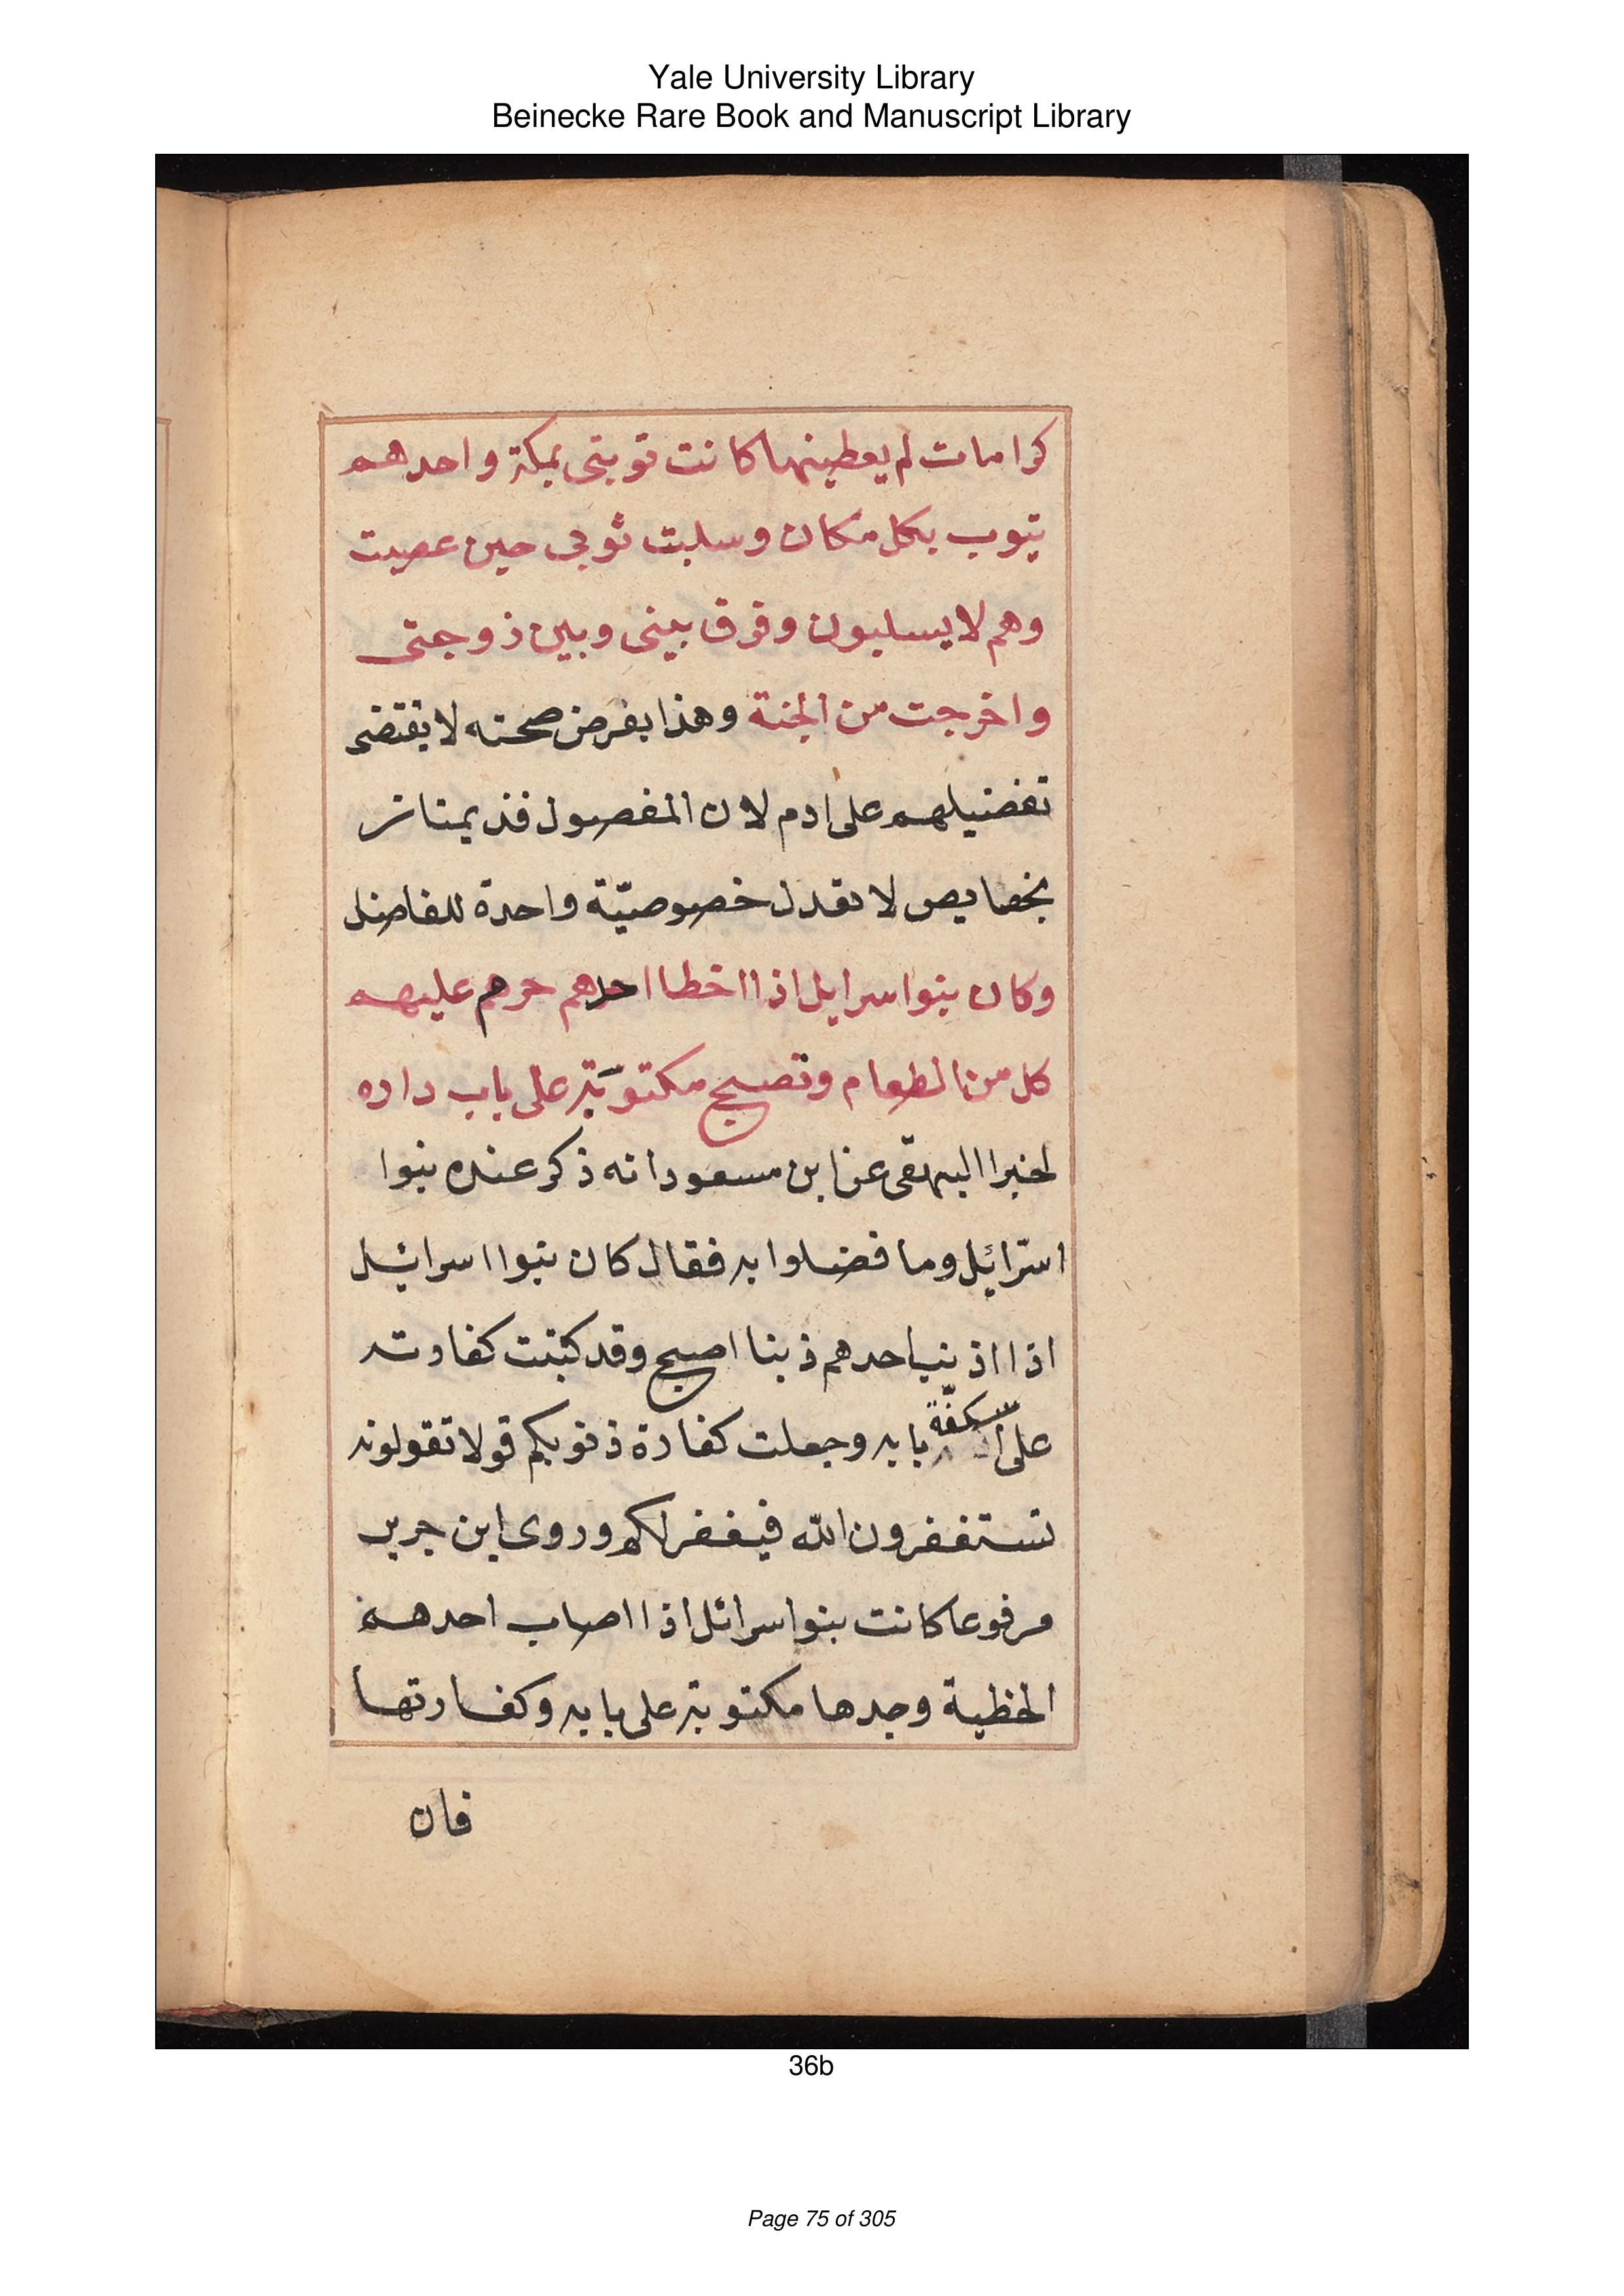 Yale University Library
Beinecke Rare Book and Manuscript Library
كرامات لم يعطينها كانت توبتى بمكة واحدهم
يتوب بكل مكان وسلبت ثوبى حين عصيت
وهم لا يسلبون وفرق بينى وبين زوجتى
واخرجت من الجنة وهذا بفرض صحته لا يقتضى
تفضيلهم على ادم لان المفضول قد يمتاز
بخصايص لا تعدل خصوصيّة واحدة للفاضل
وكان بنوا سرايل اذا اخطا احدهم حرم عليهم
كل من الطعام وتصبح مكتوبَة على باب داره
لخبر البيهقى عن ابن مسعود انه ذكر عنده بنوا
اسرائيل وما فضلوا به فقال كان بنوا اسرائيل
اذا اذنب احدهم ذنبا اصبح وقد كتبت كفارته
على اسكفّة بابه وجعلت كفارة ذنوبكم قولا تقولونه
تستغفرون الله فيغفر لكم وروى ابن جرير
مرفوعا كانت بنوا سرائل اذا اصاب احدهم
الخطية وجدها مكتوبة على بابه وكفارتها
فان
36b
Page 75 of 305